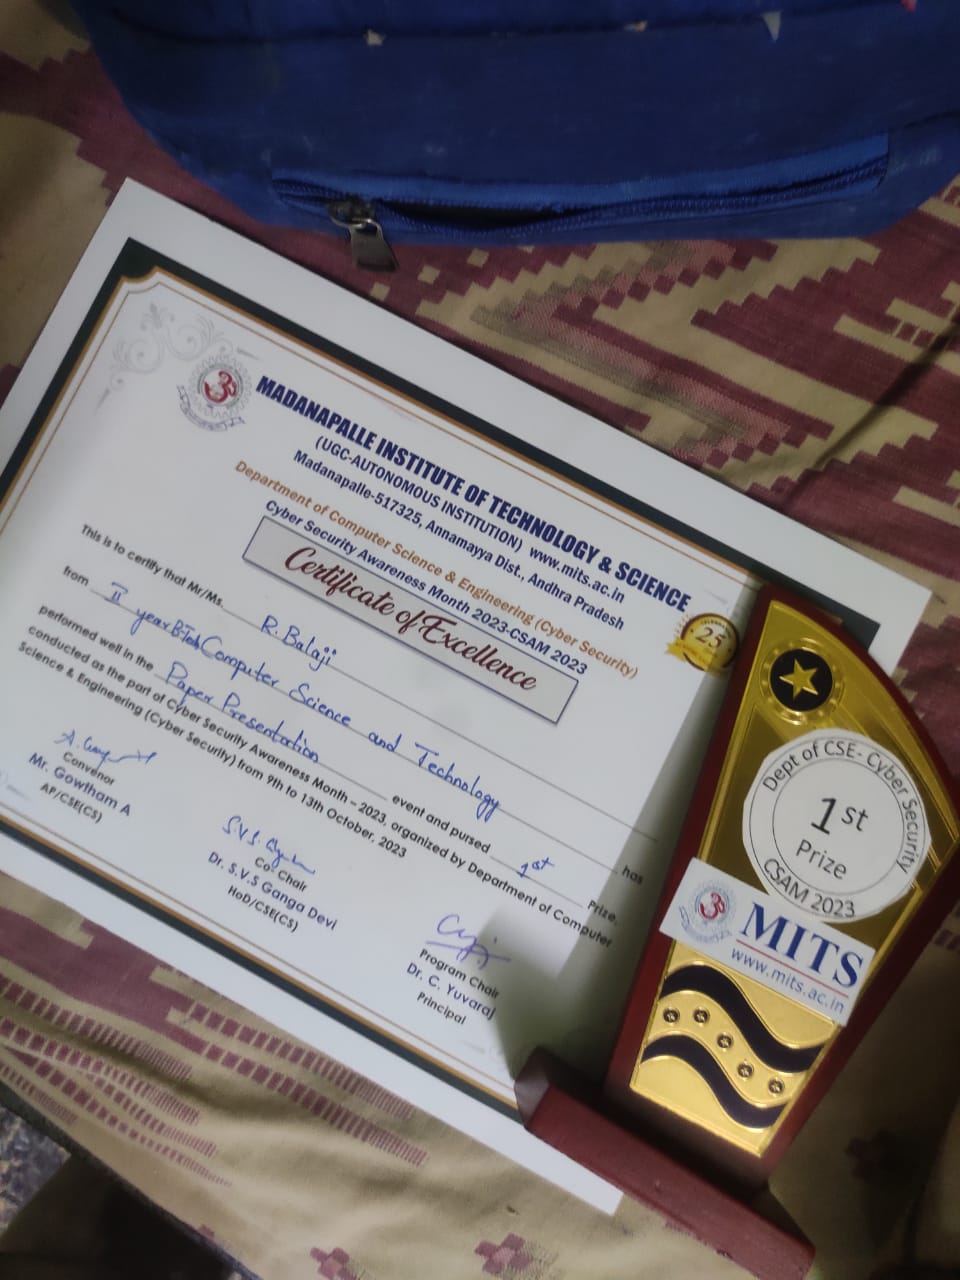 MADANAPALLE INSTITUTE OF TECHNOLOGY & SCIENCE
(UGC-AUTONOMOUS INSTITUTION) www.mits.ac.in
Madanapalle-517325, Annamayya Dist., Andhra Pradesh
Department of Computer Science & Engineering (Cyber Security)
Cyber Security Awareness Month 2023-CSAM 2023
Certificate of Excellence
25
This is to certify that Mr/Ms. R. Balaji
from II year B-Tech Computer Science and Technology has
performed well in the Paper Presentation event and pursed 1st Prize,
conducted as the part of Cyber Security Awareness Month – 2023, organized by Department of Computer
Science & Engineering (Cyber Security) from 9th to 13th October, 2023
Convenor
Mr. Gowtham A
AP/CSE(CS)
S.V.S.
Co. Chair
Dr. S.V.S Ganga Devi
HoD/CSE(CS)
Program Chair
Dr. C. Yuvaraj
Principal
Dept of CSE- Cyber Security
1st
Prize
CSAM 2023
MITS
www.mits.ac.in